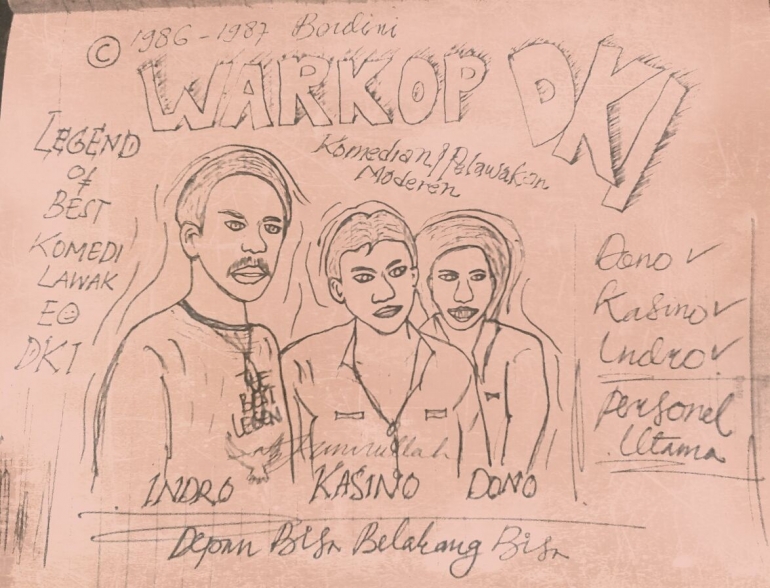 © 1986-1987 Bordini
WARKOP DKI
Komedian/Pelawakan
Moderen
LEGEND
OF
BEST
KOMEDI
LAWAK
EO
DKI
Dono ✓
Kasino ✓
Indro ✓
Personel
Utama
THE
BEST
LEGEN
INDRO KASINO DONO
Depan Bisa Belakang Bisa